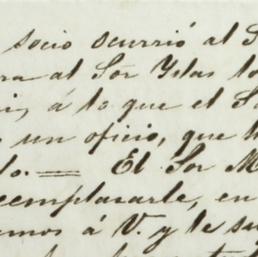 socio ocurrió al S
ra al Sor Yslas lo
á lo que el S
un oficio, que h
lo. == El Sor M
emplazarle, en
mos á V. y le su